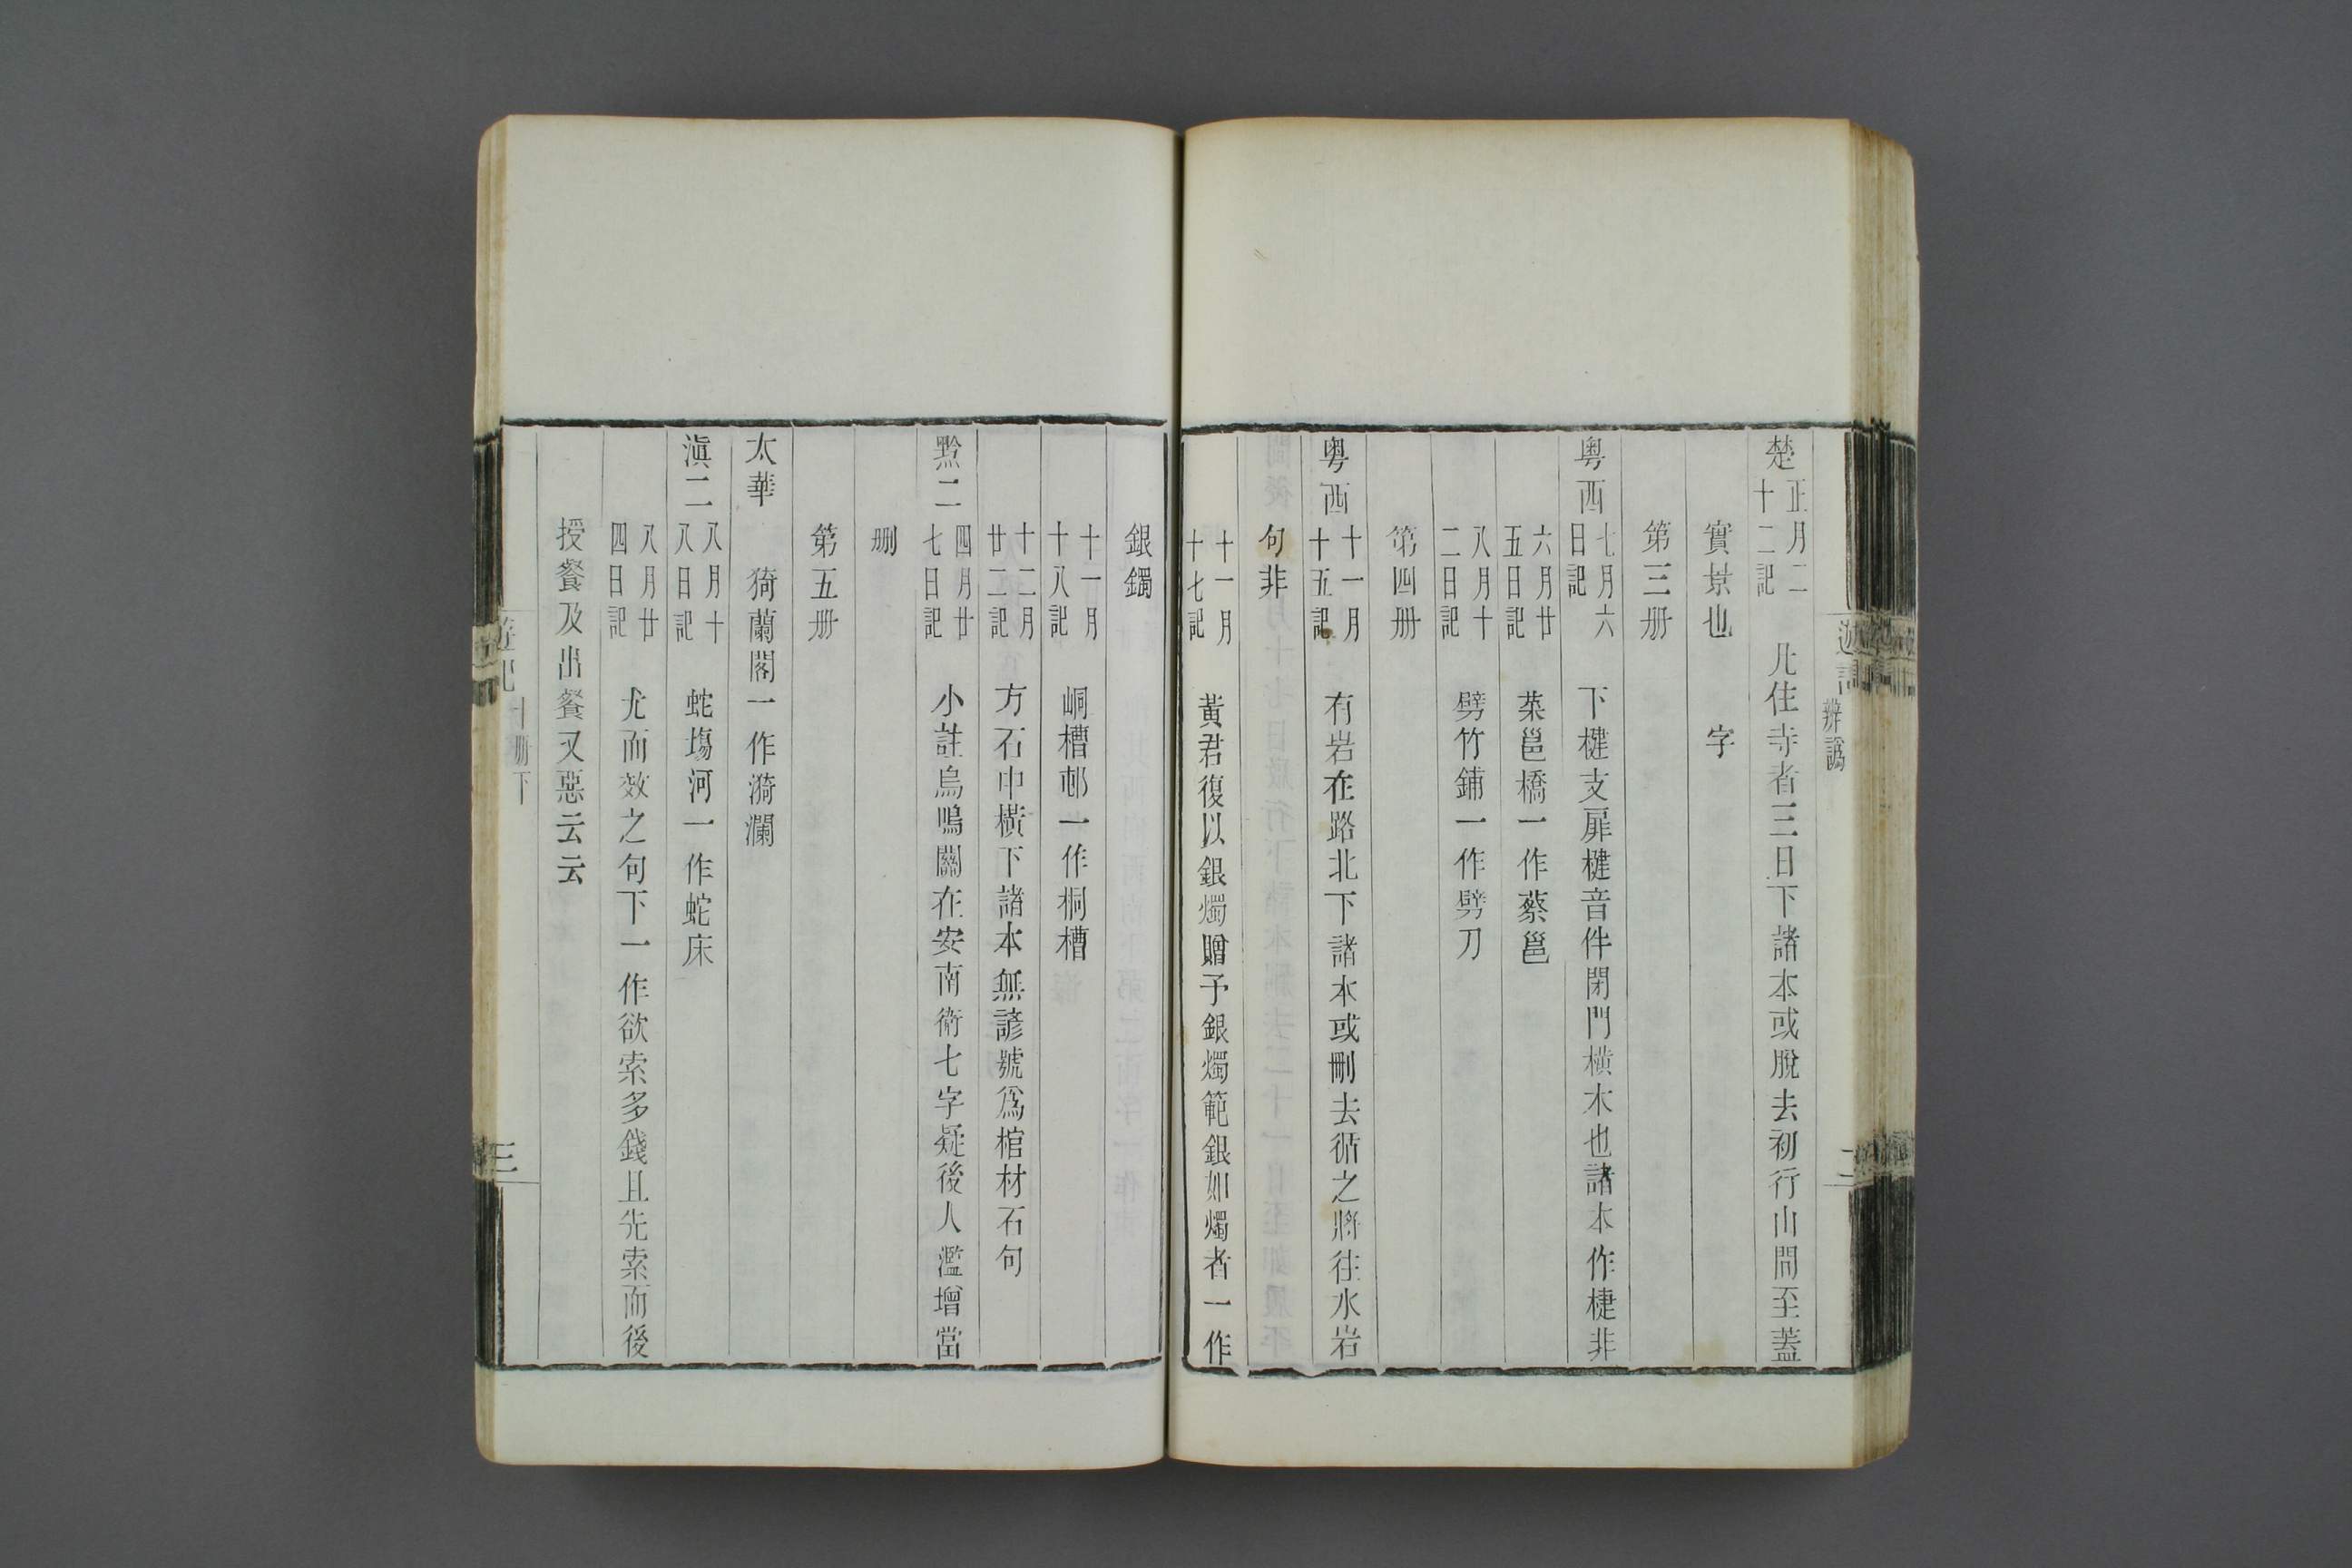 辨譌
楚 正月二十二記 凡住寺者三日下諸本或脫去初行山間至蓋
實景也 字
第三册
粵西 七月六日記 下楗支扉楗音件閉門橫木也諸本作楗非
六月廿五日記 菜邕橋一作蔡邕
八月十二日記 劈竹鋪一作劈刀
第四册
粵西 十一月十五記 有岩在路北下諸本或刪去循之將往水岩
句非
十一月十七記 黃君復以銀燭贈予銀燭範銀如燭者一作
銀鐲
十一月十八記 峒槽邨一作桐槽
十二月廿二記 方石中橫下諸本無諺號爲棺材石句
黔二 四月廿七日記 小註烏鳴關在安南衛七字疑後人濫增當
刪
第五册
太華 猗蘭閣一作漪瀾
滇二 八月十八日記 蛇塲河一作蛇床
八月廿四日記 尤而效之句下一作欲索多錢且先索而後
授餐及出餐又惡云云
十册下
三